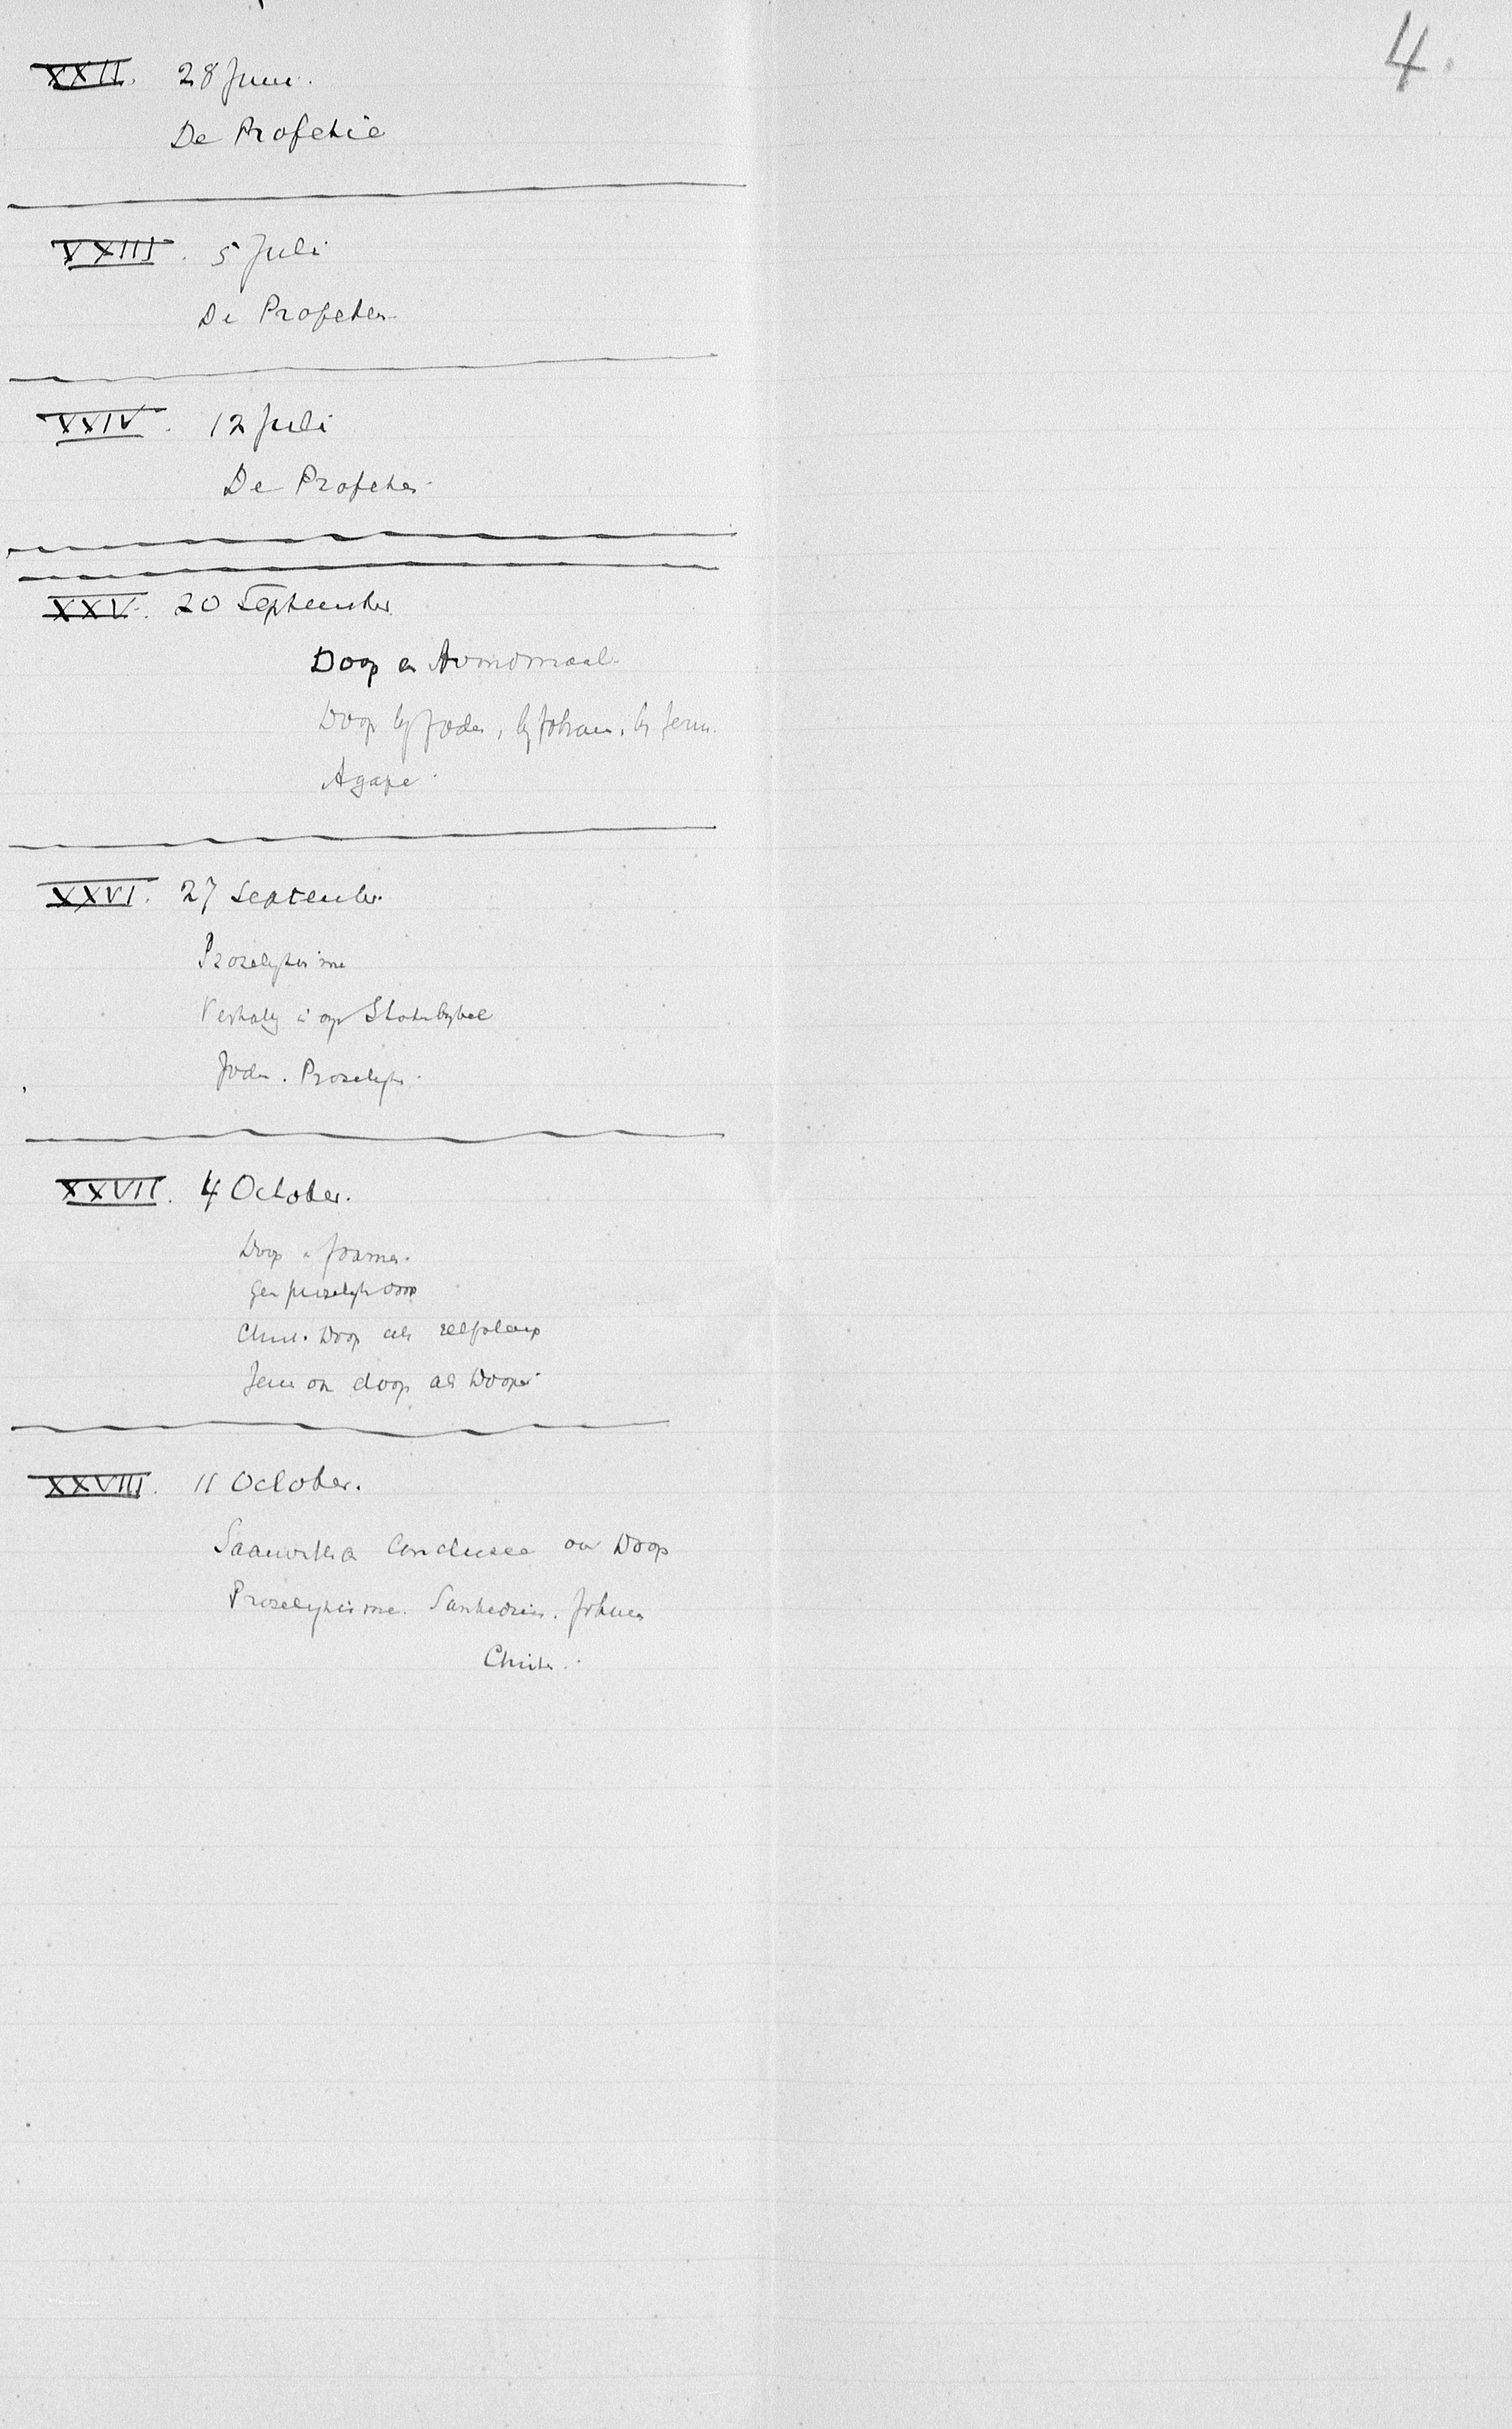 4.
XXII. 28 Juni.
De Profetie
XXIII. 5 Juli
De Profeten
XXIV. 12 Juli
De Profeten
XXV. 20 September
Doop en Avondmaal
Doop bij Joden, bij Johan, bij Jezus.
Agape
XXVI. 27 September
Proselytisme
op Statenbijbel
Joden. Proselyten
XXVII. 4 October.
Doop
proselytendoop
Doop als
Jezus doop als Dooper
XXVIII. 11 October.
Conclusie over Doop
Proselytisme. Sanhedrin. Johannes
Christus.